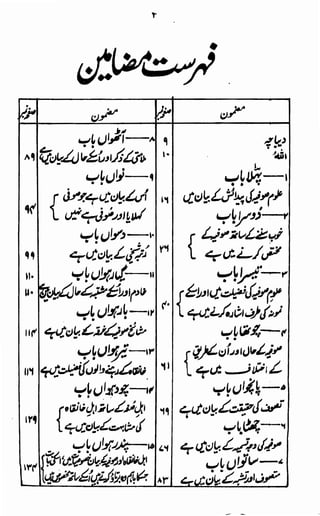 ۲
فہرست مضامین
مضمون صفحہ نمبر
دیباچہ ۹
۱۰
۱— پہلا باب
علوم صوفیہ کی پیدائش کے بیان میں ۱۶
۲— دوسرا باب
صوفیہ کے
کرنے میں ہے ۲۶
۳— تیسرا باب
علوم صوفیہ کی فضیلت میں اور اسکے
نمونہ کی طرف اشارہ کرنے میں ہے ۴۰
۴— چوتھا باب
صوفیہ کے حال اور ان کے طریق
کے اختلاف میں ہے ۶۱
۵— پانچواں باب
تصوف کی حقیقت کے بیان میں ہے ۶۹
۶— چھٹا باب
صوفیہ کی وجہ تسمیہ کے بیان میں ہے ۷۶
۷— ساتواں باب
متصوف اور متشبہ کے بیان میں ہے ۸۳
مضمون صفحہ نمبر
۸— آٹھواں باب
ملامتی کے ذکر اور اسکے حال کے بیان میں ہے ۸۹
۹— نواں باب
اس کے بیان میں ہے جو صوفی
کہلایا اور صوفی ہے نہیں ۹۴
۱۰— دسواں باب
کے بیان میں ہے ۹۹
۱۱— گیارہواں باب ۱۱۰
خادم اور اسکے متشبہ کے حال کے بیان میں ہے ۱۱۰
۱۲— بارہواں باب
مشائخ صوفیہ کے خرقہ کے بیان میں ہے ۱۱۳
۱۳— تیرہواں باب
خانقاہ کے رہنے والوں کی فضیلت میں ہے ۱۱۶
۱۴— چودہواں باب
اہل صفہ کے ساتھ اہل خانقاہ
کی مشابہت کے بیان میں ہے ۱۲۹
۱۵— پندرہواں باب
اہل خانقاہ اور صوفیہ کے ۱۳۴